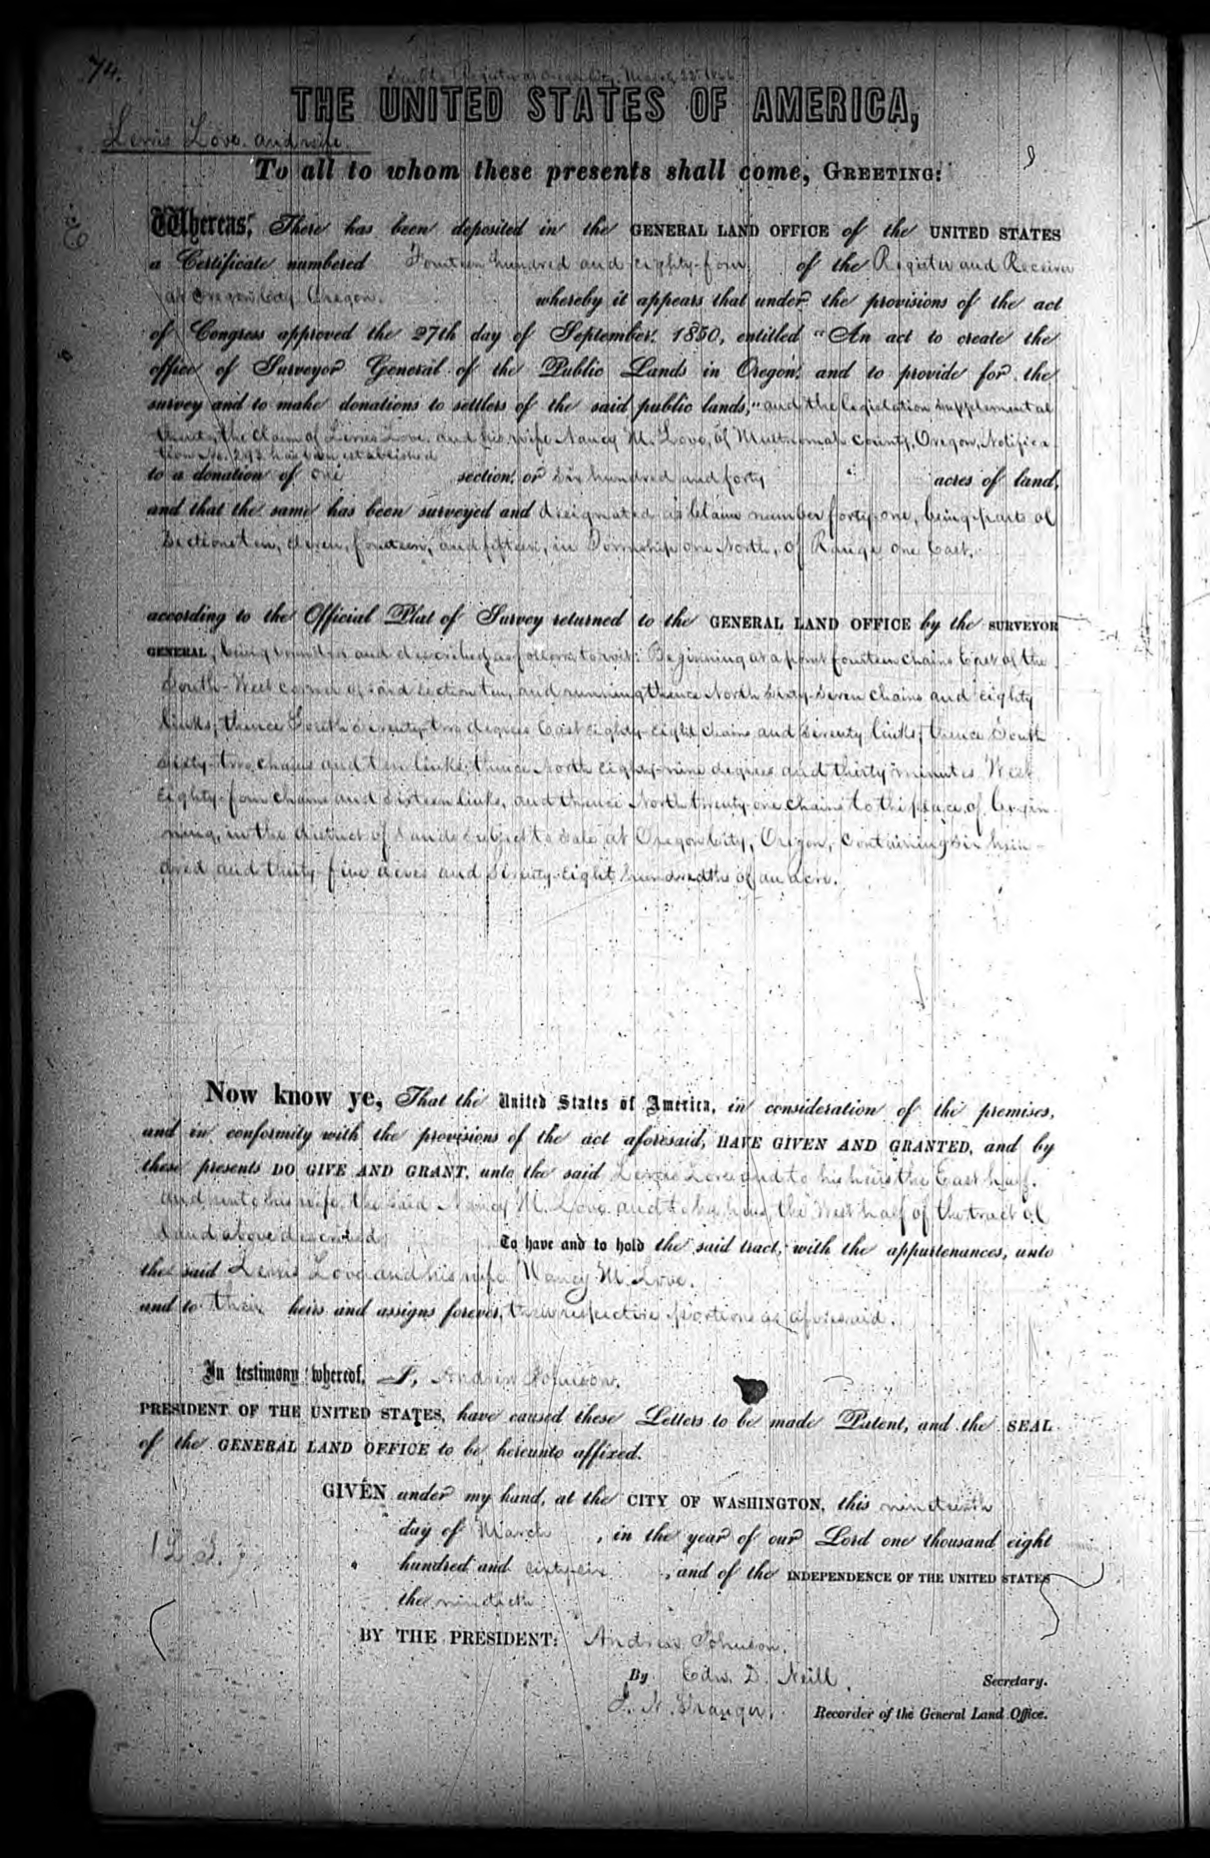 74.
Register at Oregon City, March 22 1866
THE UNITED STATES OF AMERICA,
Lewis Love and wife
To all to whom these presents shall come, GREETING:
Whereas, There has been deposited in the GENERAL LAND OFFICE of the UNITED STATES
a Certificate numbered Fourteen hundred and eighty-four of the Register and Receiver
at Oregon City Oregon. whereby it appears that under the provisions of the act
of Congress approved the 27th day of September, 1850, entitled "An act to create the
office of Surveyor General of the Public Lands in Oregon, and to provide for the
survey and to make donations to settlers of the said public lands," and the legislation supplemental
thereto, the claim of Lewis Love and his wife Nancy M. Love, of Multnomah County, Oregon, Notifica-
tion No. 293 has been established
to a donation of one section, or six hundred and forty acres of land,
and that the same has been surveyed and designated as Claim number forty-one, being parts of
Sections ten, eleven, fourteen, and fifteen, in Township one North, of Range one East.
according to the Official Plat of Survey returned to the GENERAL LAND OFFICE by the SURVEYOR
GENERAL, being bounded and described as follows to wit: Beginning at a point fourteen chains East of the
South-West corner of said Section ten, and running thence North Sixty-Seven chains and eighty
links; thence South Seventy-two degrees East eighty-eight chains and seventy links; thence South
Sixty-two chains and ten links; thence North eighty-nine degrees and thirty minutes West
eighty-four chains and sixteen links, and thence North twenty-one chains to the place of begin-
ning, in the district of Lands subject to Sale at Oregon City, Oregon, containing Six hun-
dred and thirty-five acres and Seventy-eight hundredths of an acre.
Now know ye, That the United States of America, in consideration of the premises,
and in conformity with the provisions of the act aforesaid, HAVE GIVEN AND GRANTED, and by
these presents DO GIVE AND GRANT, unto the said Lewis Love and to his heirs the East half,
and unto his wife, the said Nancy M. Love and to her heirs, the West half of the tract of
Land above described To have and to hold the said tract, with the appurtenances, unto
the said Lewis Love and his wife Nancy M. Love.
and to their heirs and assigns forever, their respective portions as aforesaid.
In testimony whereof, I, Andrew Johnson,
PRESIDENT OF THE UNITED STATES, have caused these Letters to be made Patent, and the SEAL
of the GENERAL LAND OFFICE to be hereunto affixed.
GIVEN under my hand, at the CITY OF WASHINGTON, this nineteenth
day of March, in the year of our Lord one thousand eight
(L. S.)
hundred and sixty-six, and of the INDEPENDENCE OF THE UNITED STATES
the ninetieth
BY THE PRESIDENT: Andrew Johnson.
By Edw. D. Neill, Secretary.
I. N. Granger, Recorder of the General Land Office.